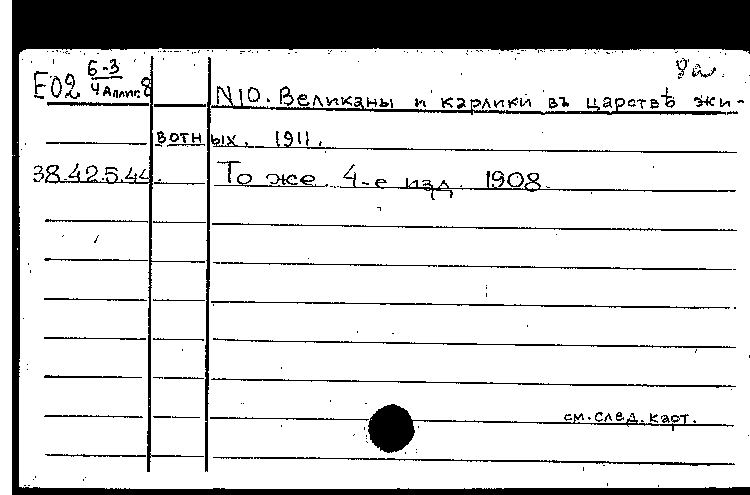 9a
Е02 6-3
4 Аллиг. 8
N10. Великаны и карлики въ царствѣ жи-
вотныхъ. 1911.
38.42.5.44. То же. 4-е изд. 1908.
см. след. карт.